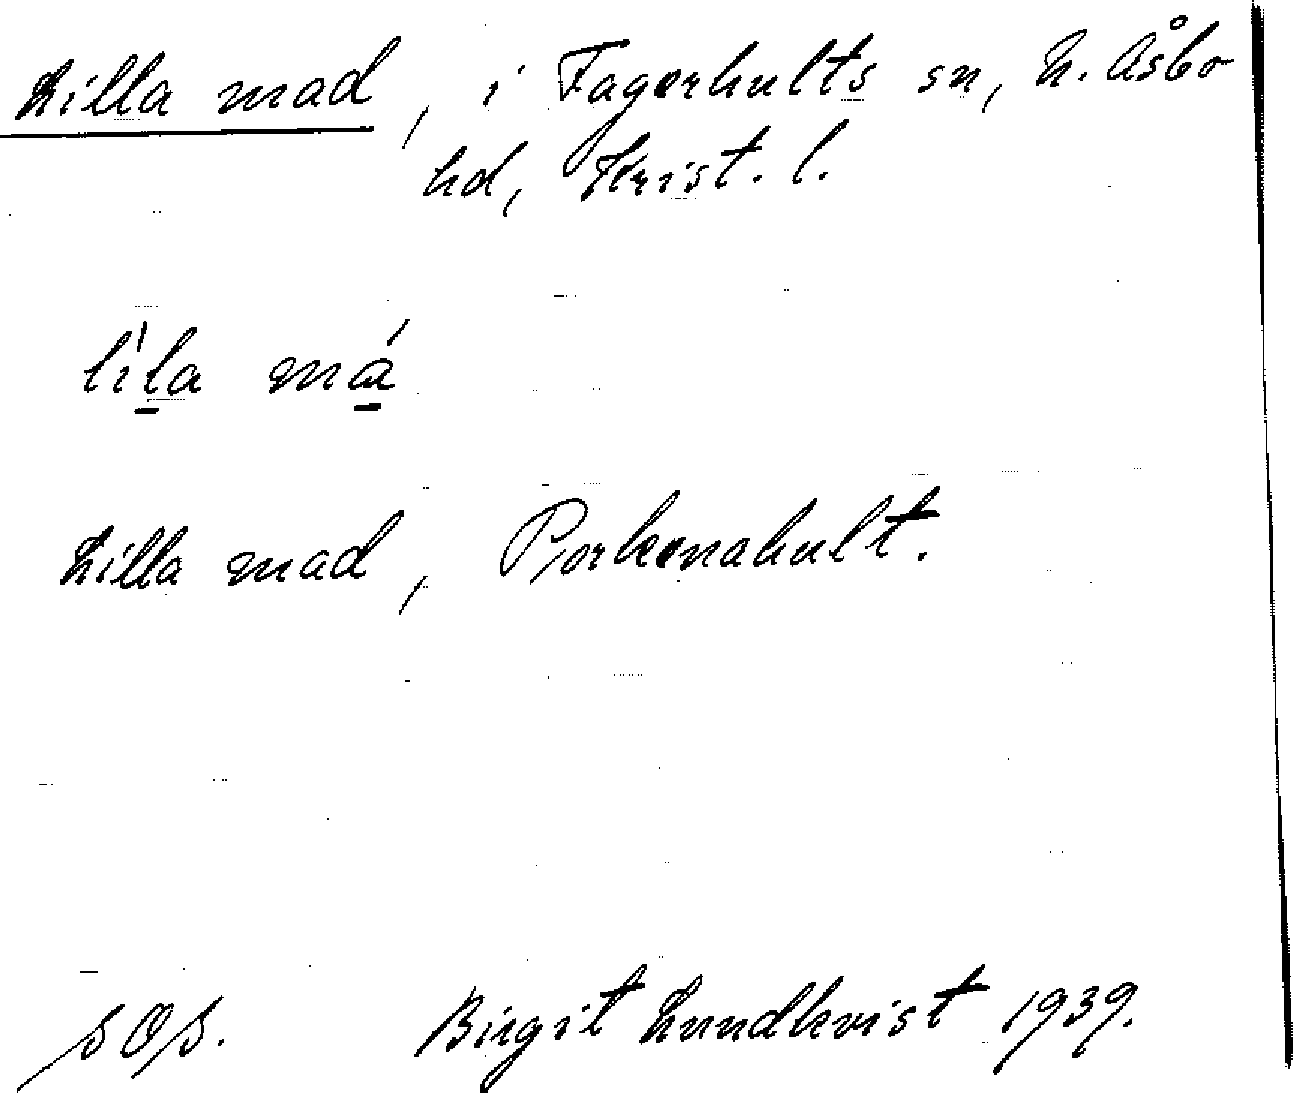 Lilla mad, i Fagerhults sn, N. Åsbo
hd, Krist. l.
li̍la má
Lilla mad, Porkenahult.
SOS. Birgit Lundkvist 1939.